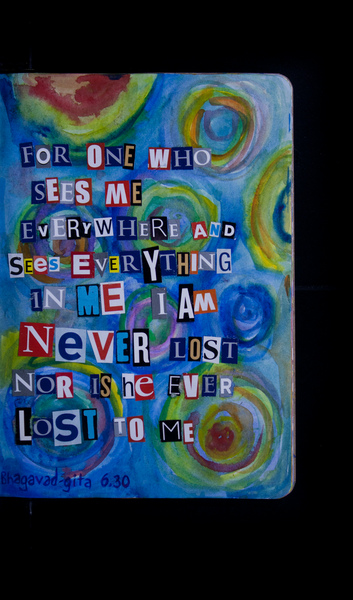 FOR ONE WHO
SEES ME
EVERYWHERE AND
SEeS EVERYTHING
IN ME I AM
NeVER LOST
NOR IS he EVER
LOST TO ME
Bhagavad-gita 6.30